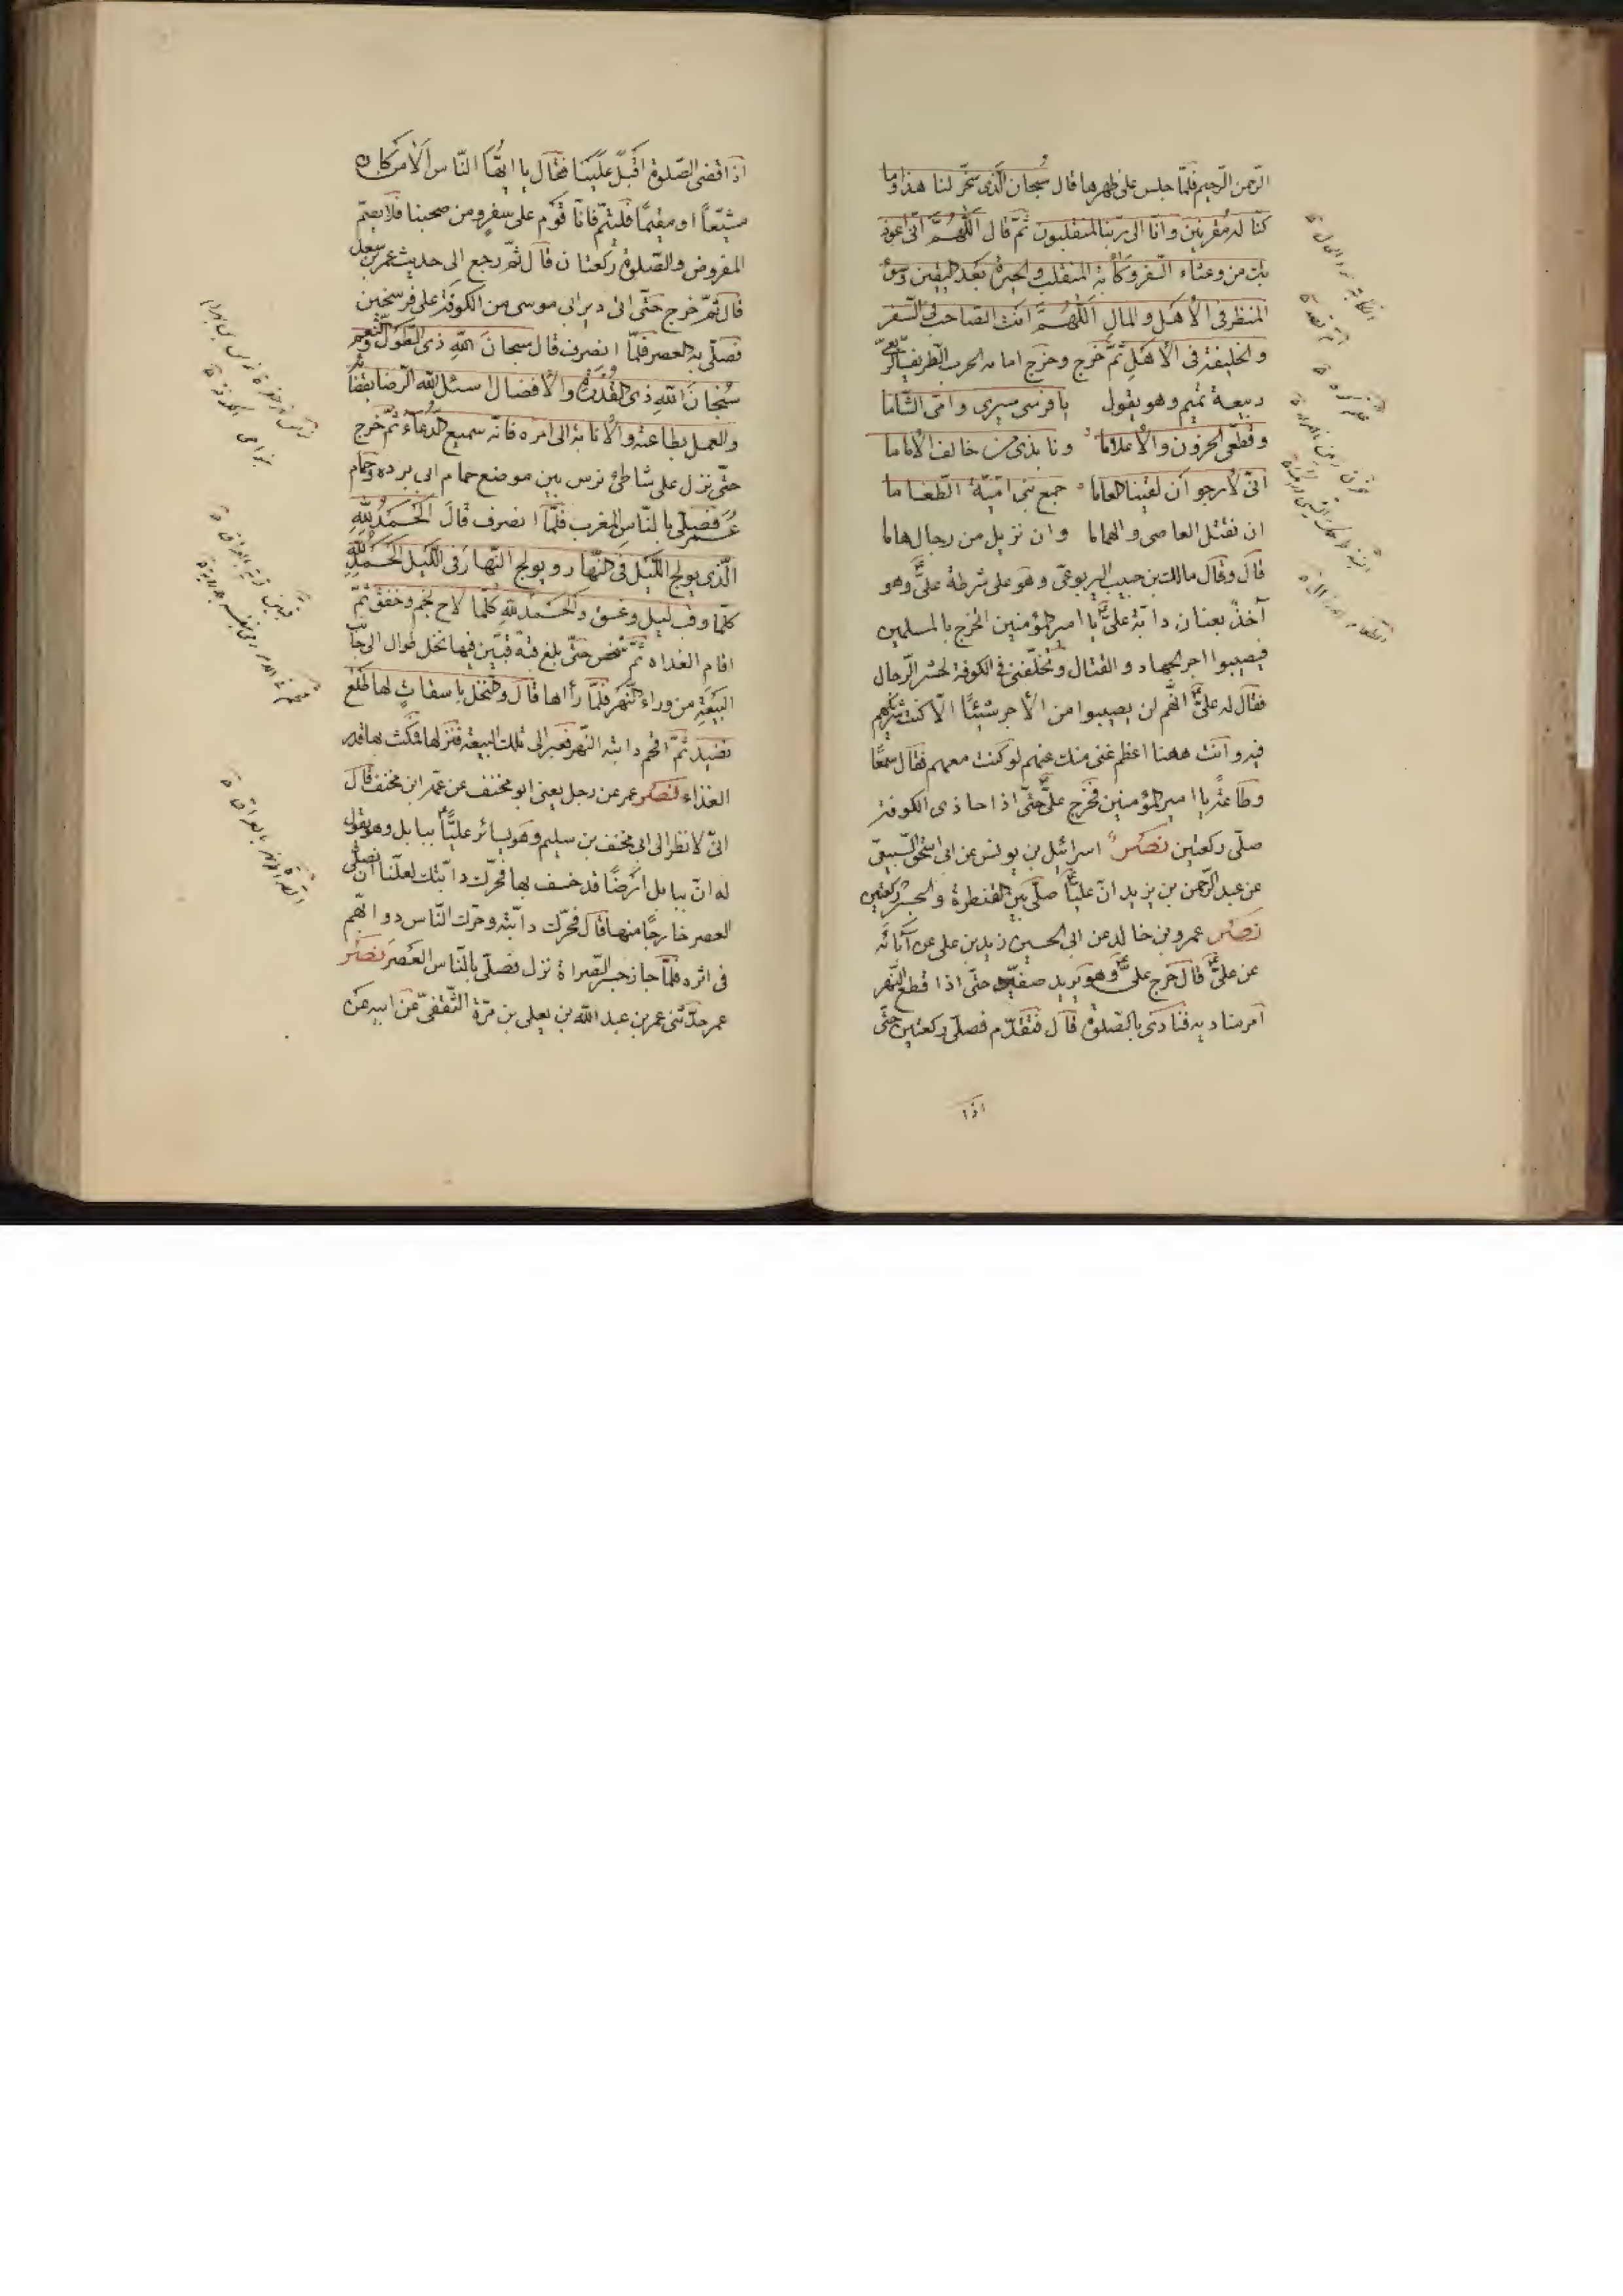 الرّحمن الرّحيم فلمّا جلس على ظهرها قال سُبحان الّذى سخّر لنا هذا وما
كنّا له مُقرنين وانّا الى ربّنا لمنقلبون ثمّ قال اللّهُمَّ انّى اعوذ
بك من وعثاء السّفر وكآبة المنقلب والحيرة بعد اليقين وسوء
المنظر فى الأهل والمال اللّهُمَّ انت الصّاحب فى السّفر
والخليفة فى الأهل ثمّ خرج وخرج امامه الحرّ بن
ربيعة تميم وهو يقول يا فرسى سيرى وامّى الشّاما
وقطّعى الحزون والأعلاما ونابذى من خالف الأماما
انّى لأرجو ان لقينا العاما جمع بنى اميّة الطّغاما
ان نقتل العاصى والهماما وان نزيل من رجال هاما
قال وقال مالك بن حبيب اليربوعىّ وهو على شرطة علىّ وهو
آخذٌ بعنان دابّة علىّ يا امير المؤمنين اتخرج بالمسلمين
فيصيبوا اجر الجهاد والقتال وتخلّفنى فى الكوفة لحشر الرّجال
فقال له علىّ انّهم لن يصيبوا من الأجر شيئًا الّا كنت شريكهم
فيه وانت ههنا اعظم غنى منك عنهم لو كنت معهم فقال سمعًا
وطاعةً يا امير المؤمنين فخرج علىّ حتّى اذا حاذى الكوفة
صلّى ركعتين نصر اسرائيل بن يونس عن ابى اسحق السّبيعىّ
عن عبد الرّحمن بن يزيد انّ عليّاً صلّى بين القنطرة والجسر ركعتين
نصر عمرو بن خالد عن ابى الحسين زيد بن على عن آبائه
عن علىّ قال خرج علىّ وهو يريد صفّين حتّى اذا قطع النّهر
امر مناديه فنادى بالصّلوة قال فتقدّم فصلّى ركعتين حتّى
اذا
اذا قضى الصّلوة اقبل علينا فقال يا ايّها النّاس ألا من كان
مشيّعاً او مقيمًا فليتمّ فانّا قوم على سفرٍ ومن صحبنا فلا يصم
المفروض والصّلوة ركعتان قال ثمّ رجع الى حديث عمر بن سعد
قال ثمّ خرج حتّى اتى دير ابى موسى من الكوفة على فرسخين
فصلّى به العصر فلمّا انصرف قال سبحان اللّه ذى الطّول والنّعم
سُبحان اللّه ذى القدرة والأفضال اسئل اللّه الرّضا بقضائه
والعمل بطاعته والأنابة الى امره فانّه سميع الدّعاء ثمّ خرج
حتّى نزل على شاطئ نرس بين موضع حمام ابى برده وحمام
عُمر فصلّى بالنّاس المغرب فلمّا انصرف قال الحمدُ للّه
الّذى يولج اللّيل فى النّهار ويولج النّهار فى اللّيل الحمد للّه
كلّما وقب ليل وغسق والحمدُ للّه كلّما لاح نجم وخفق ثمّ
اقام الغداه ثمّ شخص حتّى بلغ قبّة قبّين فيها نخل طوال الى جانب
البيعة من وراء النّهر فلمّا رأاها قال والنّخل باسقاتٍ لها طلع
نضيد ثمّ اقحم دابته النّهر فعبر الى تلك البيعة فنزلها فمكث بها قدر
الغذاء نصر عمر عن رجل يعنى ابو مخنف عن عمّه ابن مخنف قال
انّى لأنظر الى ابى مخنف بن سليم وهو يسائر عليًّا ببابل وهو يقول
له انّ ببابل ارضًا قد خسف بها فحرّك دابّتك لعلّنا ان نصلّى
العصر خارجًا منها قال فحرّك دابّته وحرّك النّاس دوابّهم
فى اثره فلمّا جاز جسر الصّراة نزل فصلّى بالنّاس العصر نصر
عمر حدّثنى عمر بن عبد اللّه بن يعلى بن مرّة الثّقفىّ عن ابيه عن